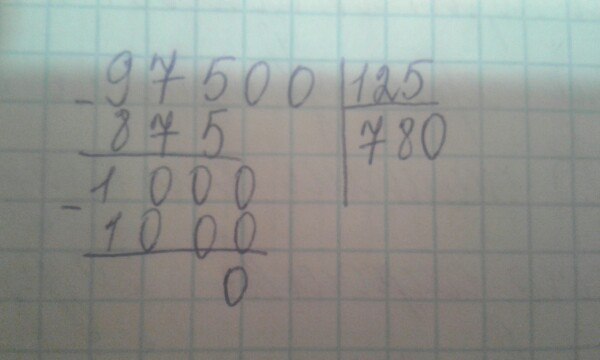 - 97500 | 125
875 | 780
- 1000
1000
0